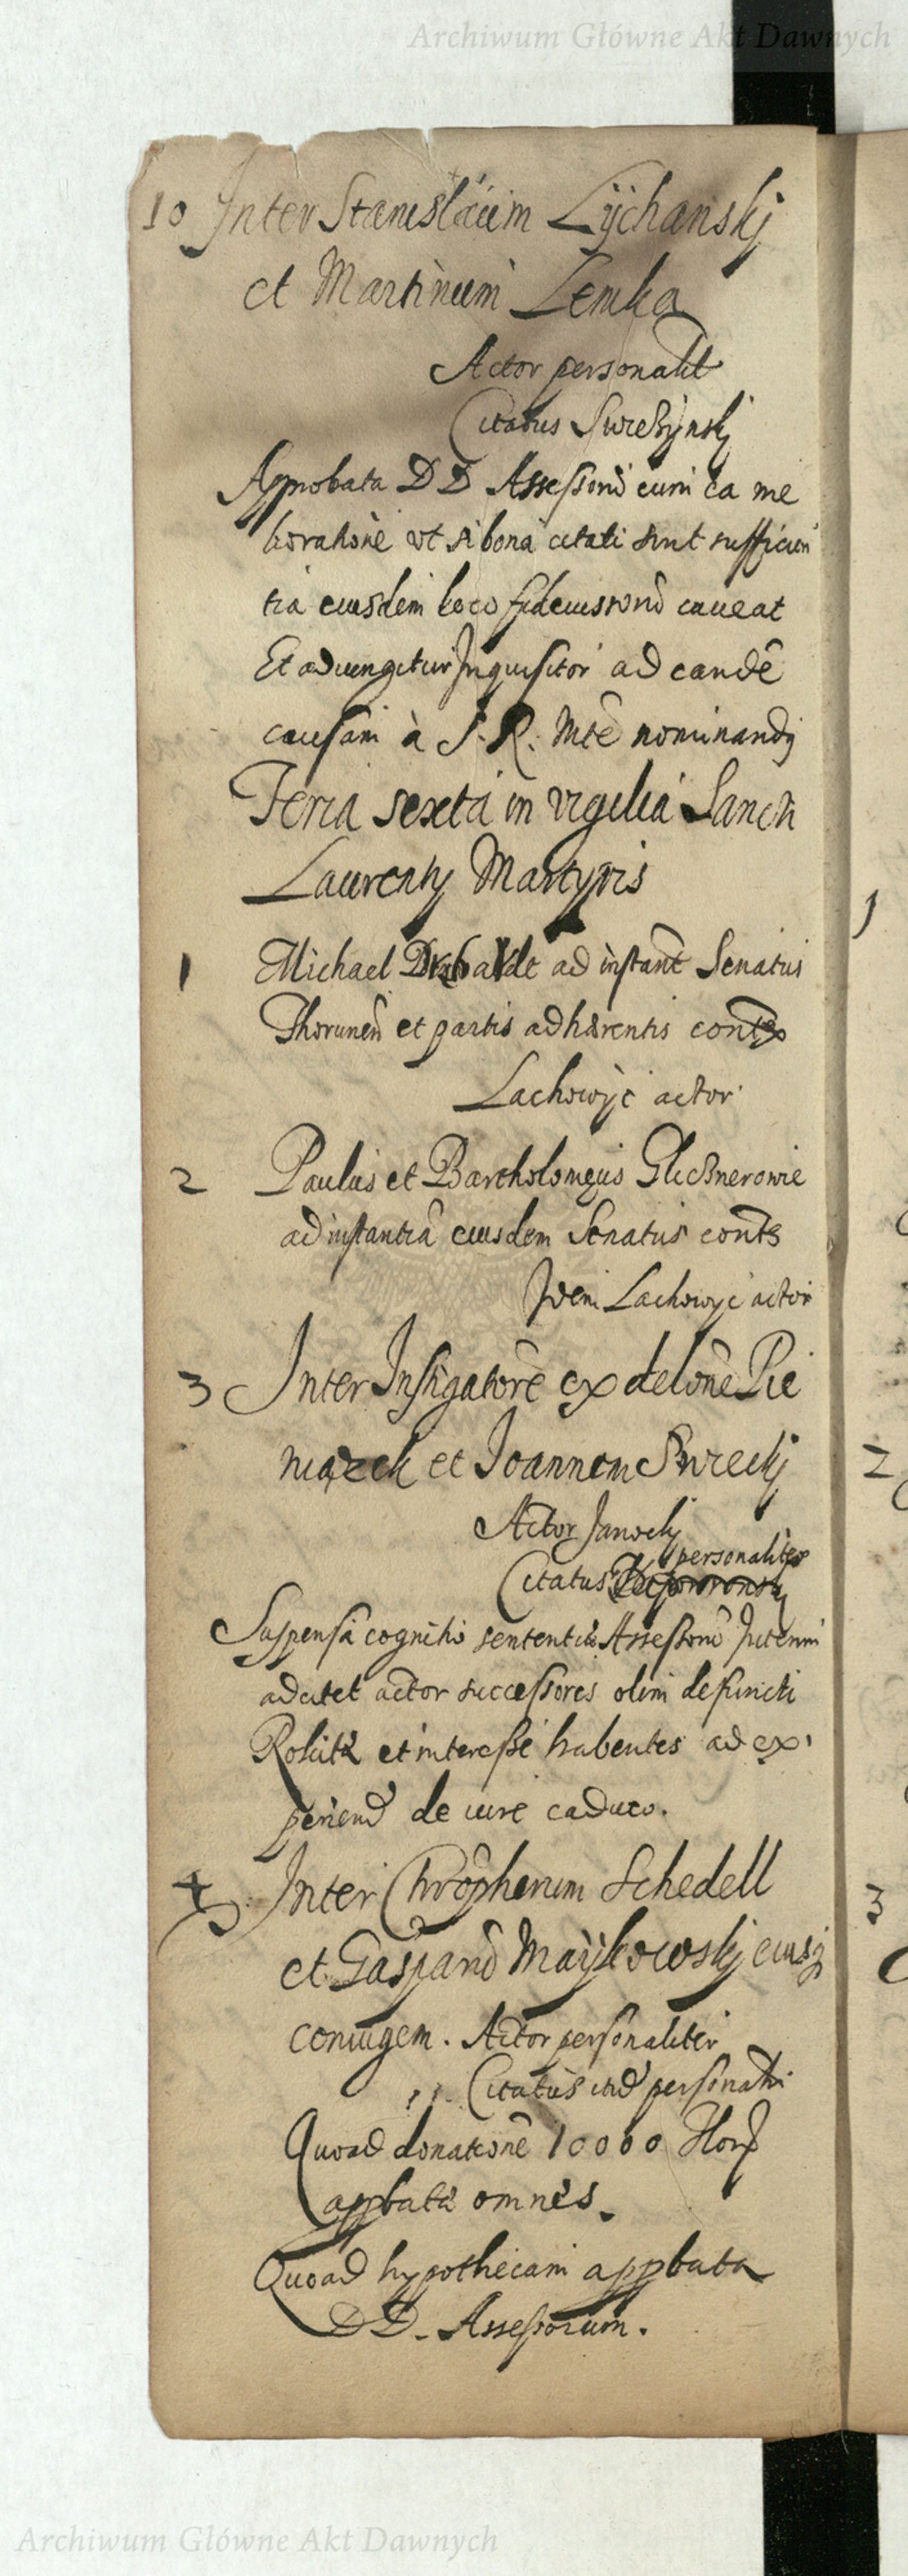 Archiwum Główne Akt Dawnych
10 Inter Stanislaum Lÿchanskj
et Martinum Lemka
Actor personalit
Citatus Swieszÿnskj
Approbata DD Assessorū cum ea me
lioratione vt si bona citati sint sufficien
tia eiusdem loco fideiussorū caueat
Et adiungitur Inquisitor ad eandē
causam à S. R. Mte nominandj
Feria sexta in vigilia Sancti
Laurentij Martyris
1 Michael ad instant Senatus
Thorunen et partis adhærentis contx
Lachowÿc actor
2 Paulus et Bartholomęus Glicznerowie
ad instantiā eiusdem Senatus contx
Idem Lachowyc actor
3 Inter Instigatorē ex delōne Pie
niązek et Joannem Swieckj
Actor Janockj
personaliter
Citatus
Suspensa cognitio sententiæ Assessorū Interim
adcitet actor successores olim defuncti
et interesse habentes ad ex
periend de iure caduco.
4 Inter Chrōpherum Schedell
et Gasparū Maÿkowskj eiusq
coniugem. Actor personaliter
Citatus itid personalr
Quoad donationē 10000 flor
appbata omnes.
Quoad hypothecam appbata
DD. Assessorum.
1
2
3
Archiwum Główne Akt Dawnych